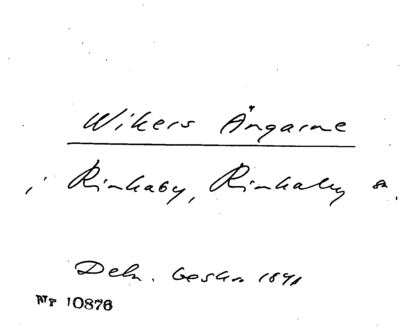 Wikers Ängarne
i Rinkaby, Rinkaby sn.
Deln. beskr. 1891
Nr 10876